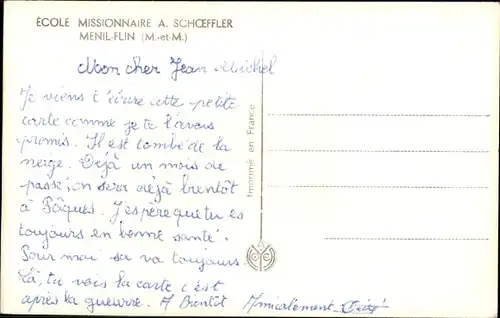 ÉCOLE MISSIONNAIRE A. SCHŒFFLER
MENIL-FLIN (M.-et-M.)
Mon cher Jean Michel
Je viens t'écrire cette petite
carte comme je te l'avais
promis. Il est tombé de la
neige. Déjà un mois de
passé, on sera déjà bientôt
à Pâques. J'espère que tu es
toujours en bonne santé.
Pour moi sa va toujours.
Là, tu vois la carte c'est
après la guerre. A Bientôt Amicalement
Imprimé en France